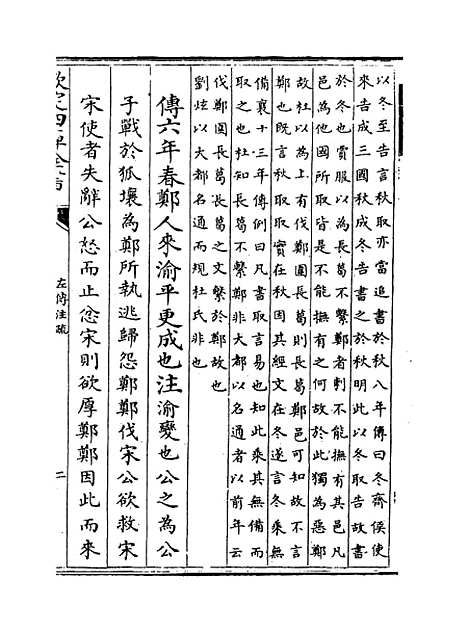 以冬至告言秋取亦當追書於秋八年傳曰冬齊侯使
來告成三國秋成冬告書之於秋明此以冬取告故書
於冬也賈服以為長葛不繫鄭者刺不能撫有其邑凡
邑為他國所取皆是不能撫有之何故於此獨為惡鄭
故杜以為上有伐鄭圍長葛則長葛鄭邑可知故不言
鄭也既言秋取取實在秋因其經文在冬遂言冬乘無
備襄十三年傳例曰凡書取言易也知此乘其無備而
取之也杜知長葛不繫鄭非大都以名通者以前年云
伐鄭圍長葛長葛之文繫於鄭故也
劉炫以大都名通而規杜氏非也
傳六年春鄭人來渝平更成也注渝變也公之為公
子戰於狐壤為鄭所執逃歸怨鄭鄭伐宋公欲救宋
宋使者失辭公怒而止忿宋則欲厚鄭鄭因此而來
欽定四庫全書
左傳注疏
二